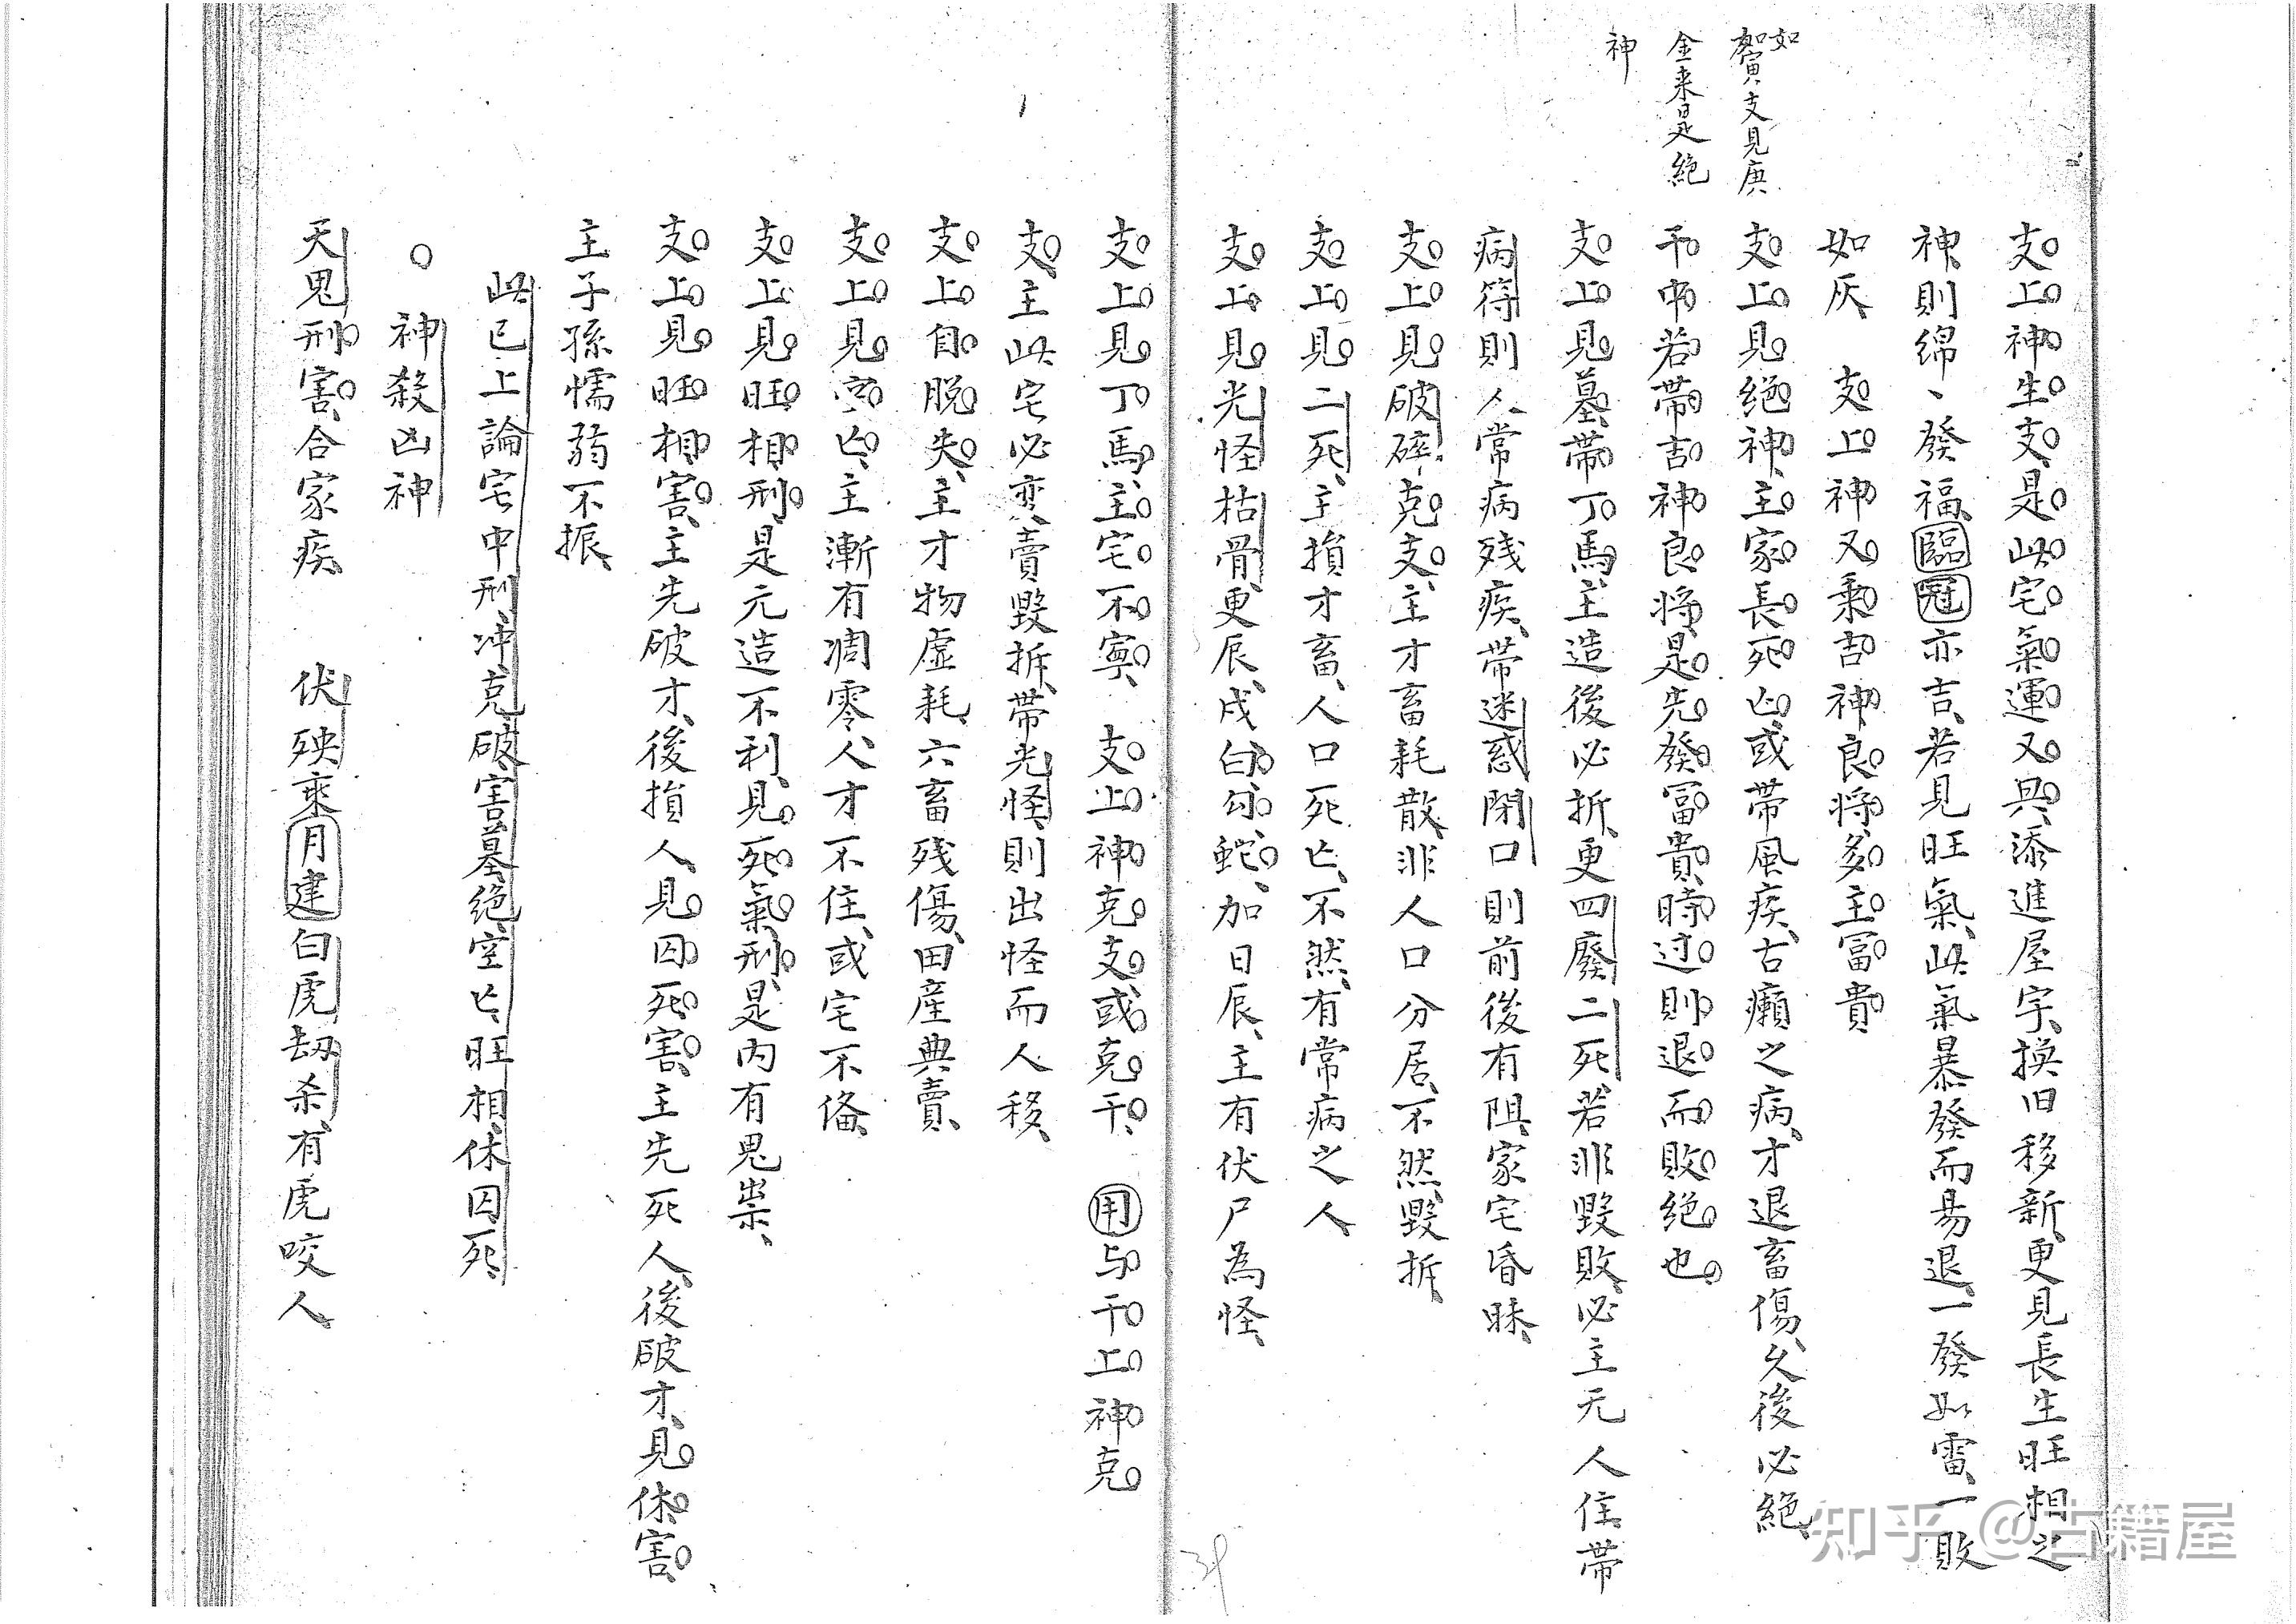 如
寅支見庚
金来是絕
神
支上神生支、是此宅氣運又興、添進屋宇、換旧移新、更見長生旺相之
神、則綿、發福、臨冠亦吉、若見旺氣、此氣暴發而易退、一發如雷、一敗
如灰　支上神又乘吉神良將、多主富貴
支上見絕神、主家長死亡、或帶風疾、古癩之病、才退畜傷、久後必絕、
干中若帶吉神良將、是先發冨貴、時过則退而敗絕也
支上見墓、帶丁馬、主造後必拆、更四廢二死、若非毀敗、必主无人住、帶
病符則人常病残疾、帶迷惑閉口則前後有阻、家宅昏昧、
支上見破碎、克支、主才畜耗散、非人口分居、不然毀拆、
支上見二死、主損才畜、人口死亡、不然、有常病之人
支上見光怪枯骨、更辰、戌、白、勾、蛇、加日辰、主有伏尸為怪、
支上見丁馬、主宅不寧、　支上神克支、或克干、　用与干上神克
支、主此宅必变賣毀拆、帶光怪、則出怪而人移、
支上自脱失、主才物虛耗、六畜残傷、田産典賣、
支上見空亡、主漸有凋零、人才不住、或宅不俻、
支上見旺相刑、是元造不利、見死氣刑、是內有鬼祟、
支上見旺相害、主先破才、後損人、見囚死害、主先死人、後破才、見休害、
主子孫懦弱不振、
此已上論宅中刑、冲、克、破、害、墓、絕、空亡、旺相、休囚死、
○　神殺凶神
天鬼刑害、合家疾、　伏殃乘月建白虎劫杀、有虎咬人
39
知乎 @古籍屋